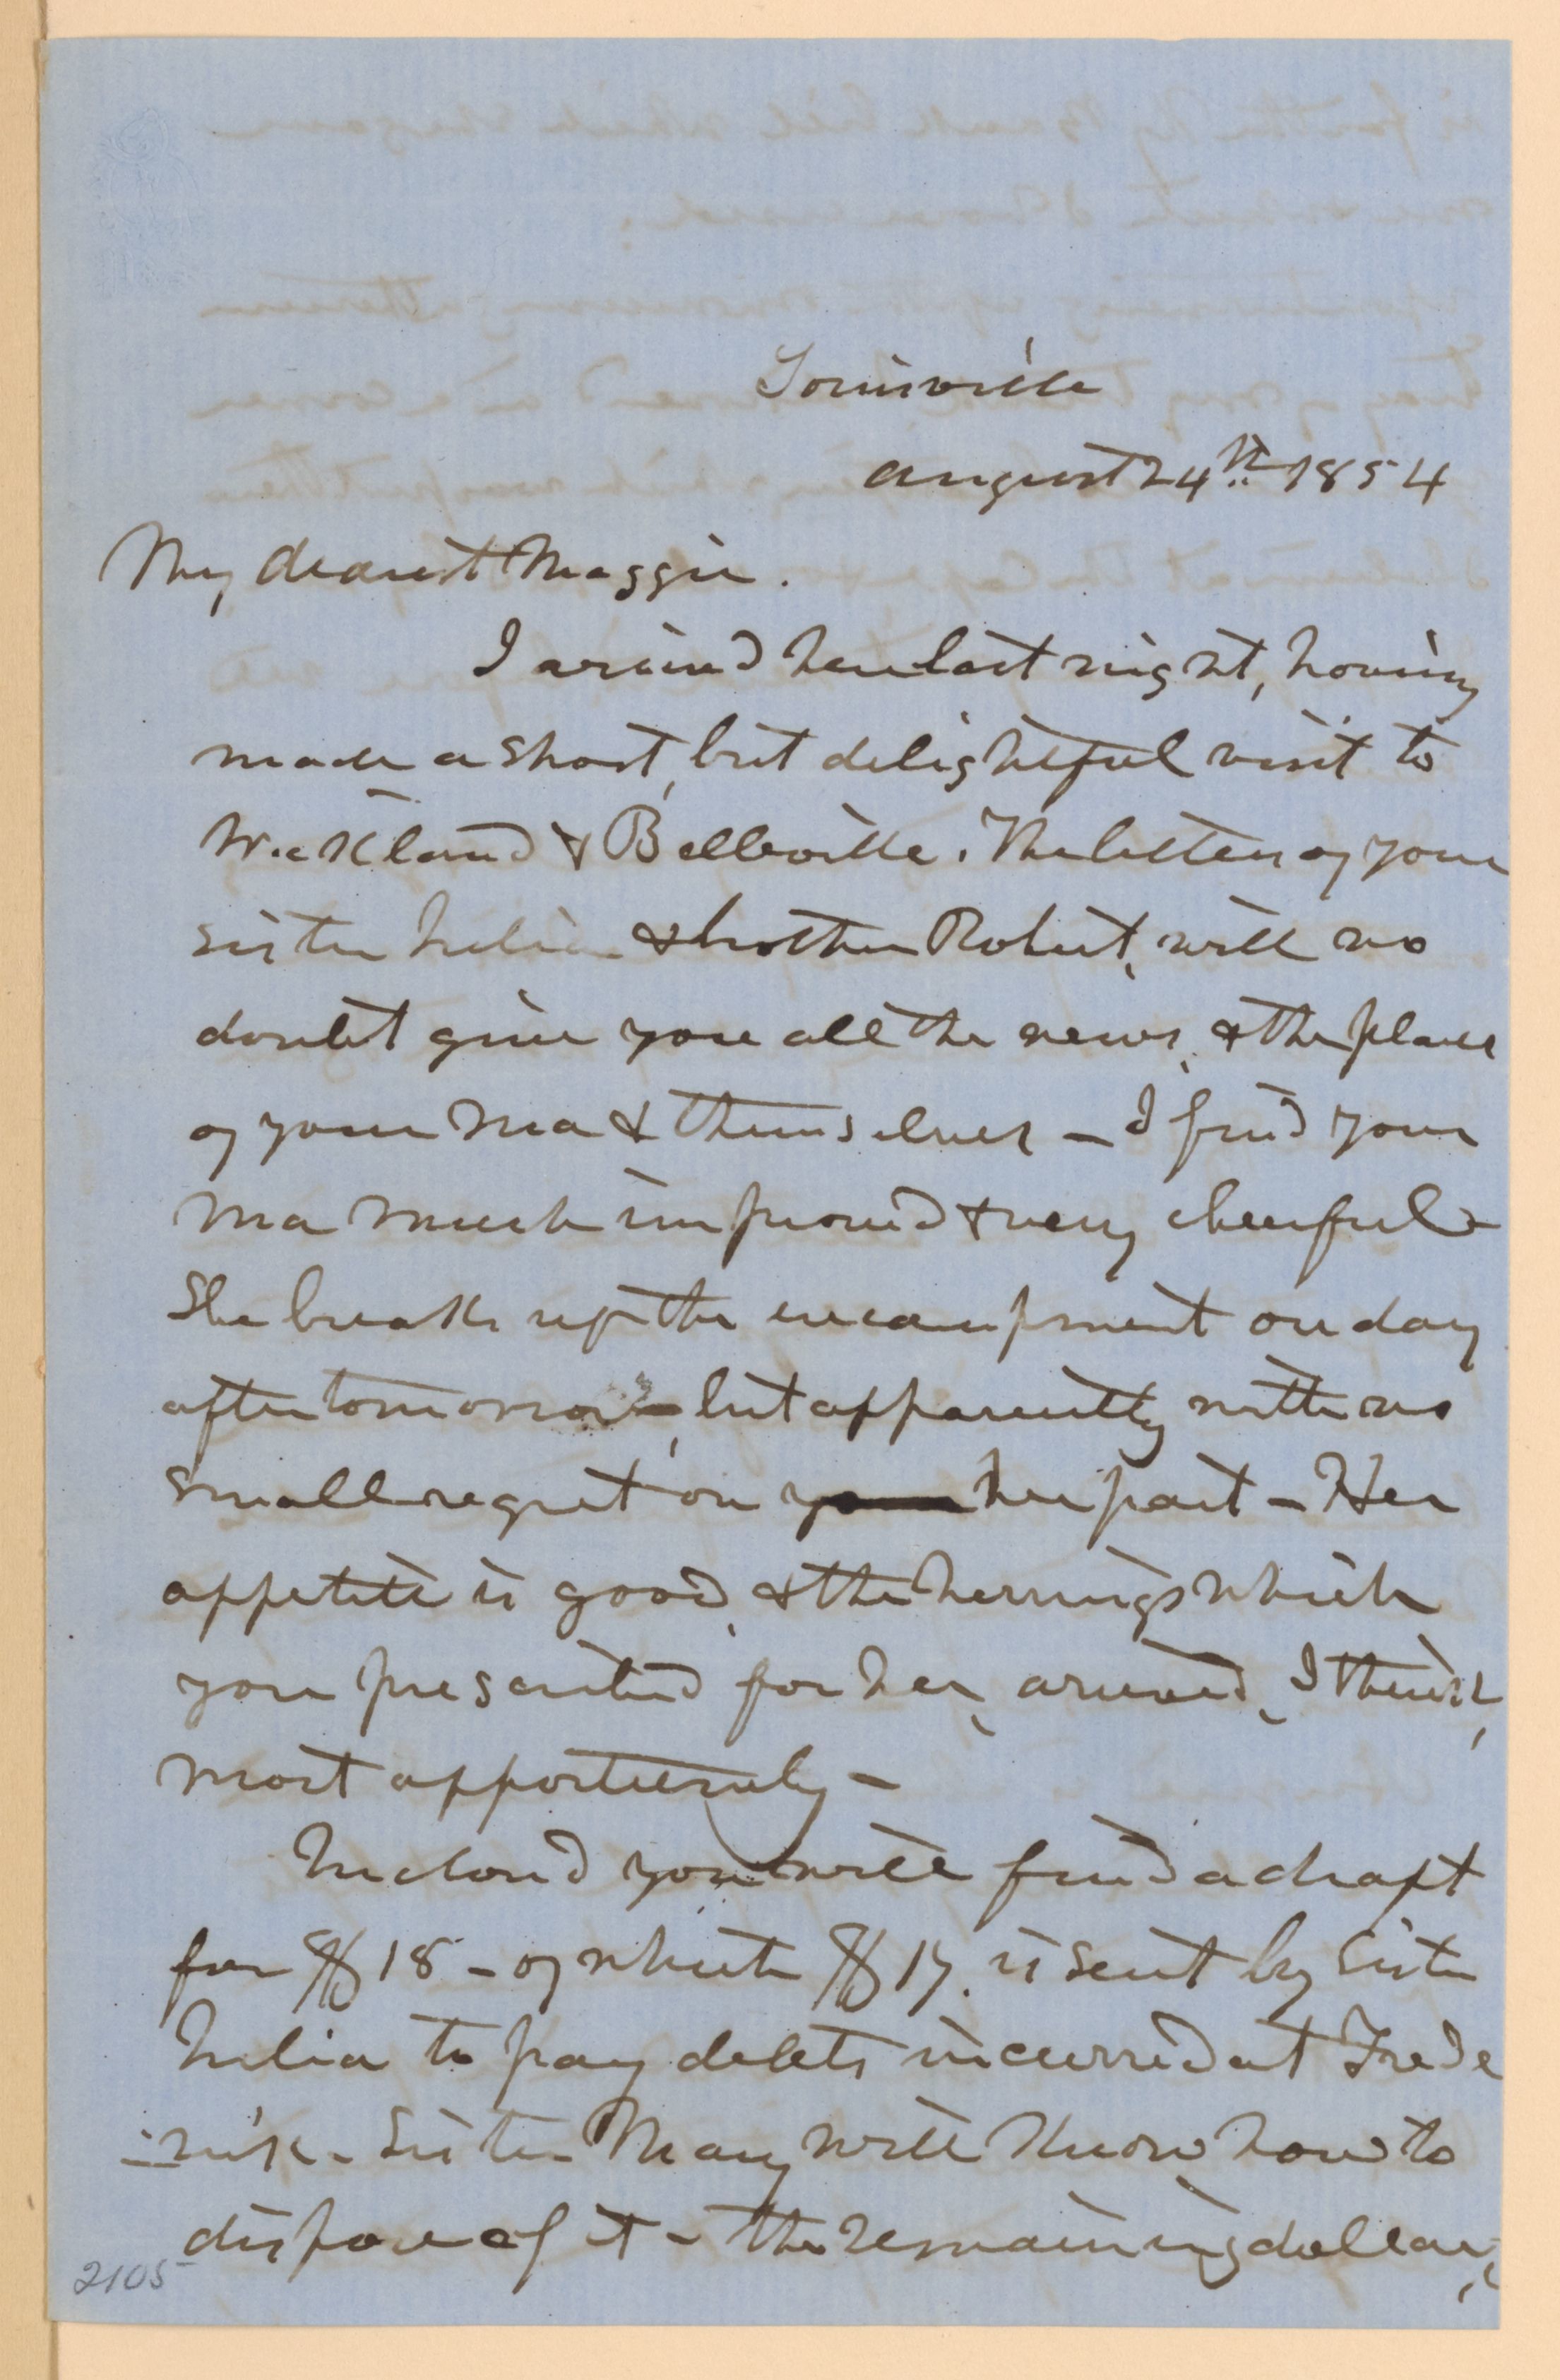 Louisville
August 24th 1854
My dearest Maggie.
I arrived here last night, having
made a short, but delightful visit to
Wickland & Belleville. The letters of your
sister Julia & brother Robert, will no
doubt give you all the news, & the plans
of your Ma & themselves – I find your
Ma much improved & very cheerful –
She breaks up the encampment on day
after tomorrow – but apparently with no
small regret on her part – Her
appetite is good, & the herrings which
you presented for her, arrived, I think,
most opportunely –
Inclosed you will find a draft
for $18 – of which $17. is sent by Sister
Julia to pay debts incurred at Frede
-rick. Sister Mary will know how to
dispose of it – the remaining dollar,
2105